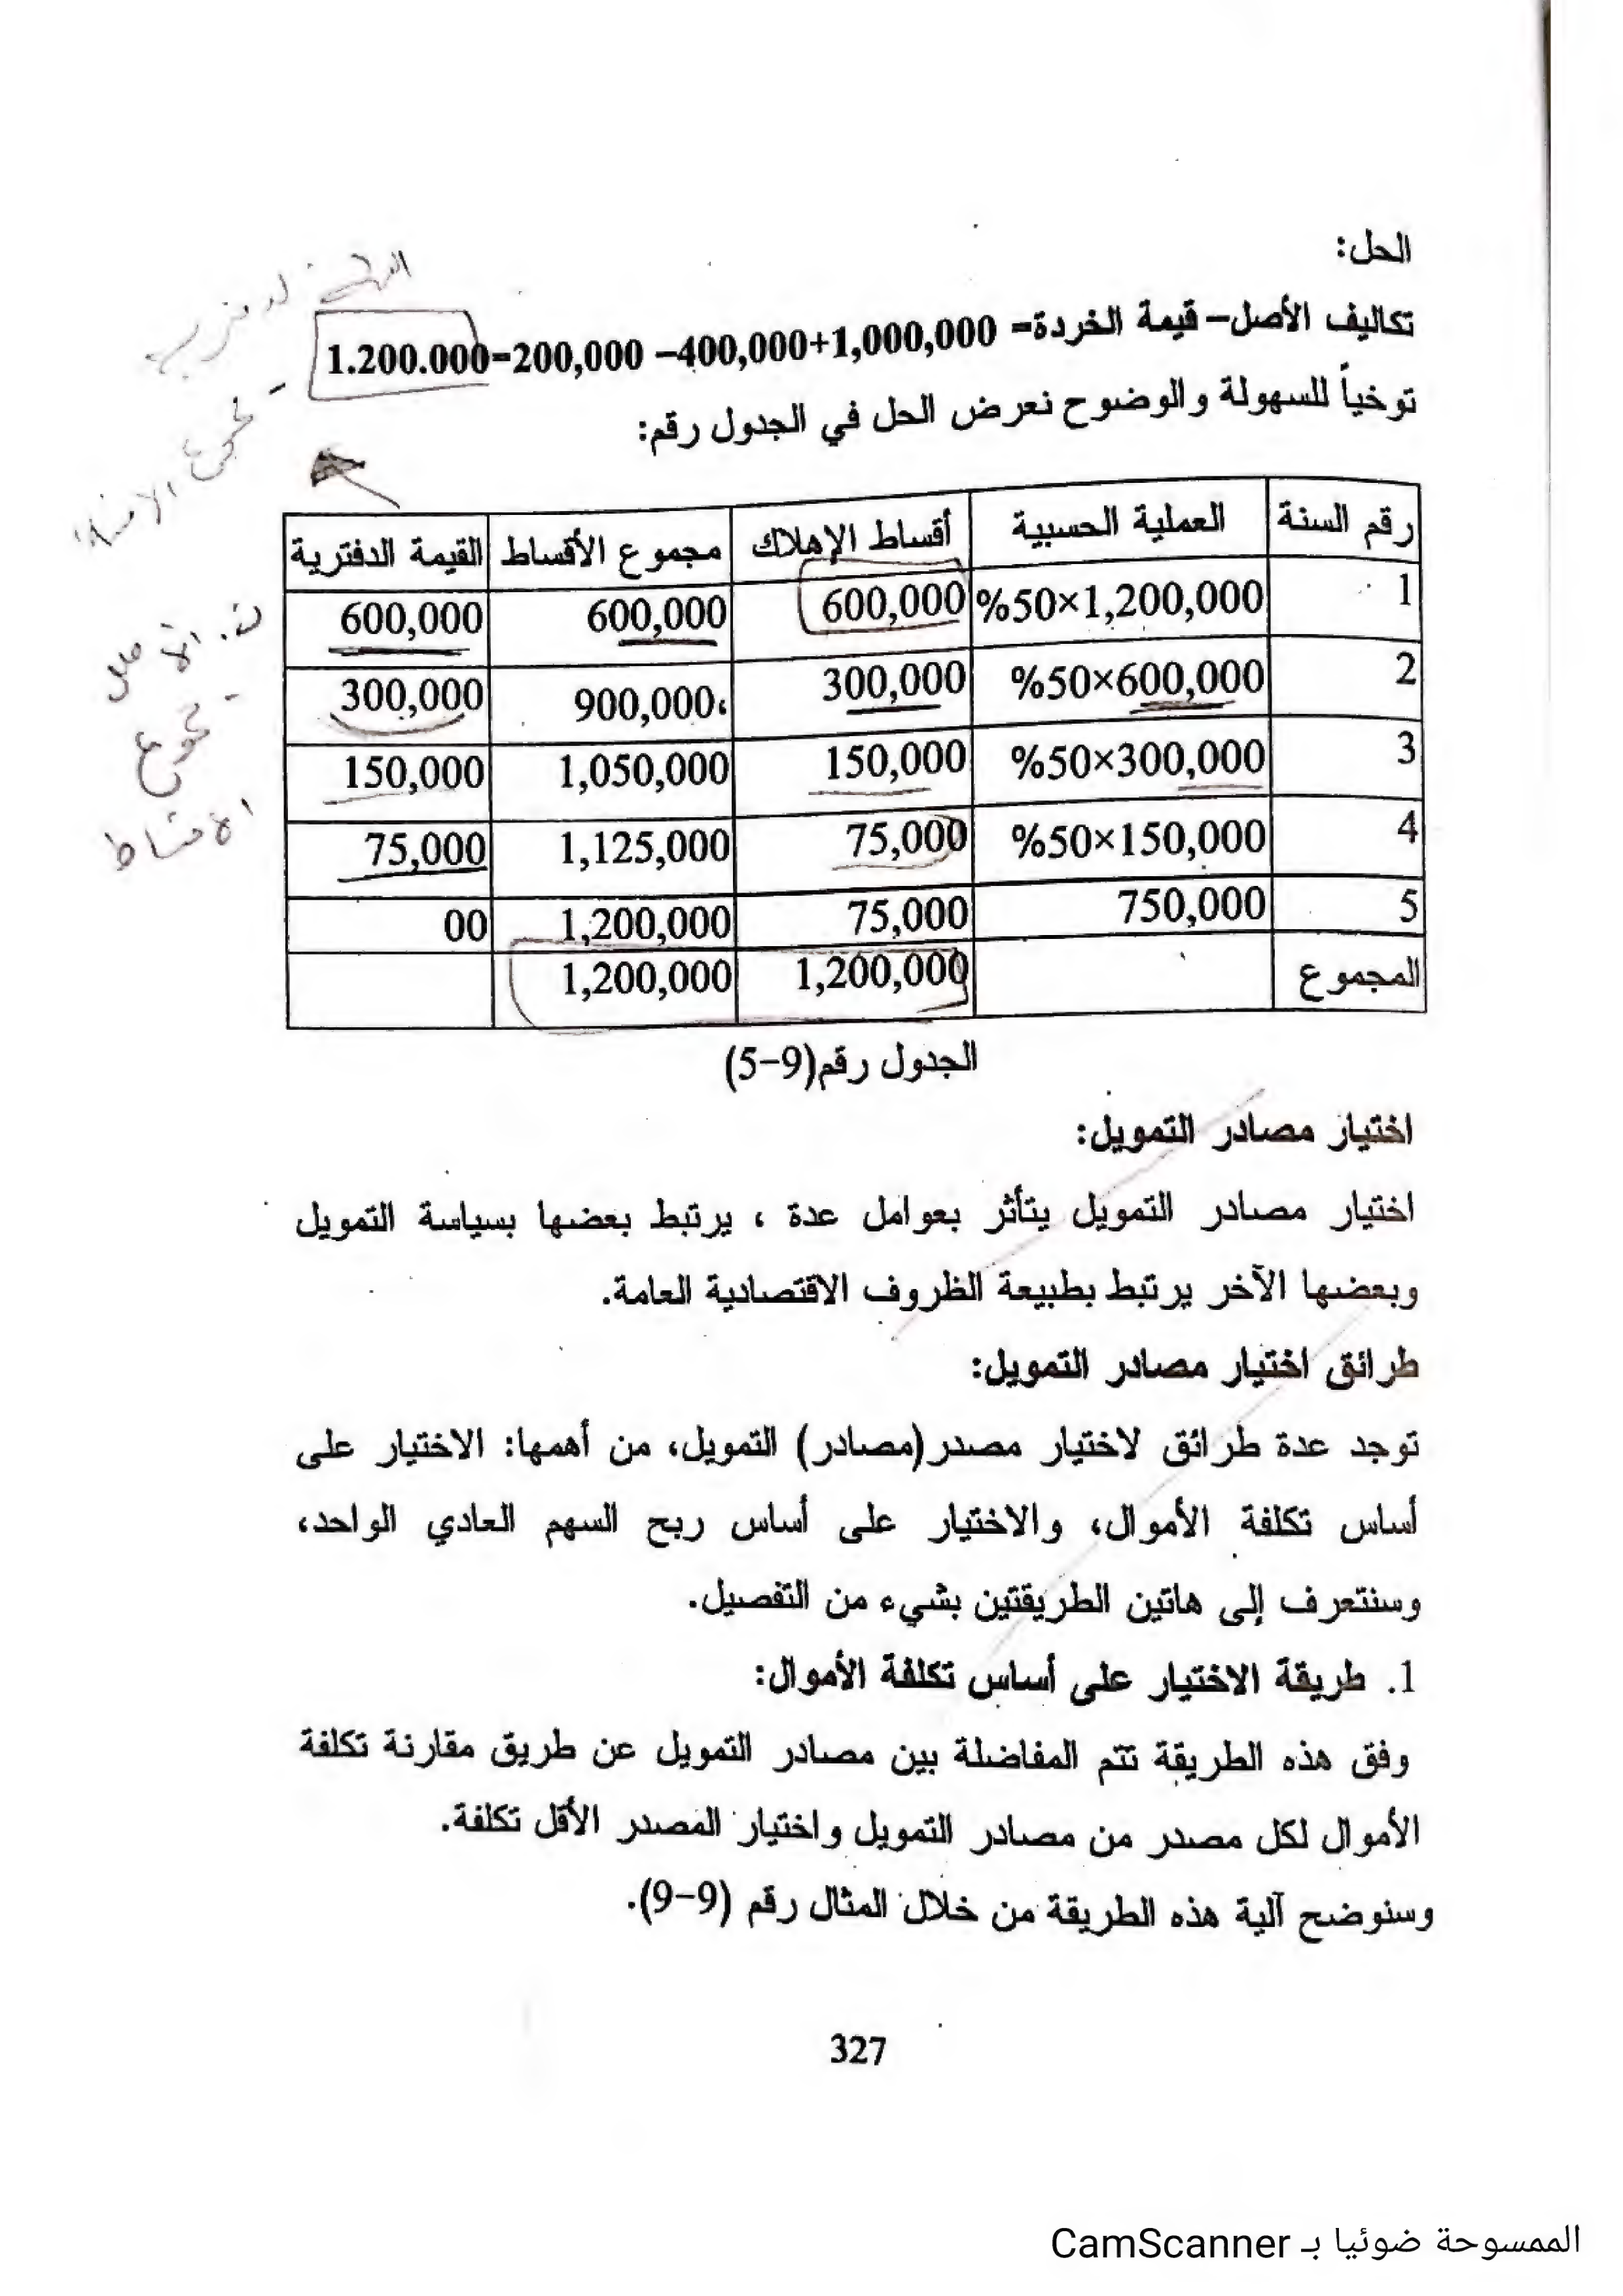 الحل:
تكاليف الأصل– قيمة الخردة= 1,000,000+400,000– 200,000=1.200.000
توخياً للسهولة والوضوح نعرض الحل في الجدول رقم:
رقم السنة العملية الحسبية أقساط الإهلاك مجموع الأقساط القيمة الدفترية
1 1,200,000×50% 600,000 600,000 600,000
2 600,000×50% 300,000 900,000 300,000
3 300,000×50% 150,000 1,050,000 150,000
4 150,000×50% 75,000 1,125,000 75,000
5 750,000 75,000 1,200,000 00
المجموع 1,200,000 1,200,000
الجدول رقم(9–5)
اختيار مصادر التمويل:
اختيار مصادر التمويل يتأثر بعوامل عدة ، يرتبط بعضها بسياسة التمويل
وبعضها الآخر يرتبط بطبيعة الظروف الاقتصادية العامة.
طرائق اختيار مصادر التمويل:
توجد عدة طرائق لاختيار مصدر(مصادر) التمويل، من أهمها: الاختيار على
أساس تكلفة الأموال، والاختيار على أساس ربح السهم العادي الواحد،
وسنتعرف إلى هاتين الطريقتين بشيء من التفصيل.
1. طريقة الاختيار على أساس تكلفة الأموال:
وفق هذه الطريقة تتم المفاضلة بين مصادر التمويل عن طريق مقارنة تكلفة
الأموال لكل مصدر من مصادر التمويل واختيار المصدر الأقل تكلفة.
وسنوضح آلية هذه الطريقة من خلال المثال رقم (9–9).
327
- مجموع
الاقساط
الممسوحة ضوئيا بـ CamScanner